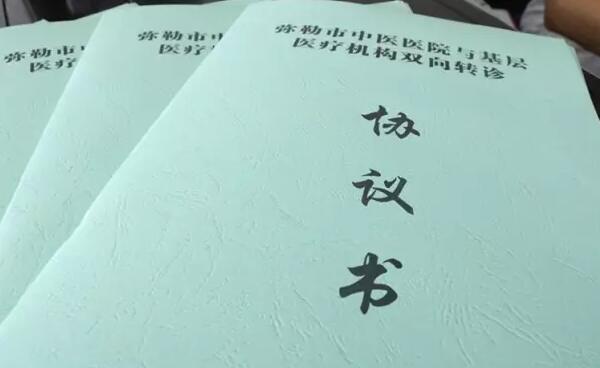 弥勒市中医医院与基层
医疗机构双向转诊
协
议
书
弥勒市中医医
医疗机
弥勒市中
医疗